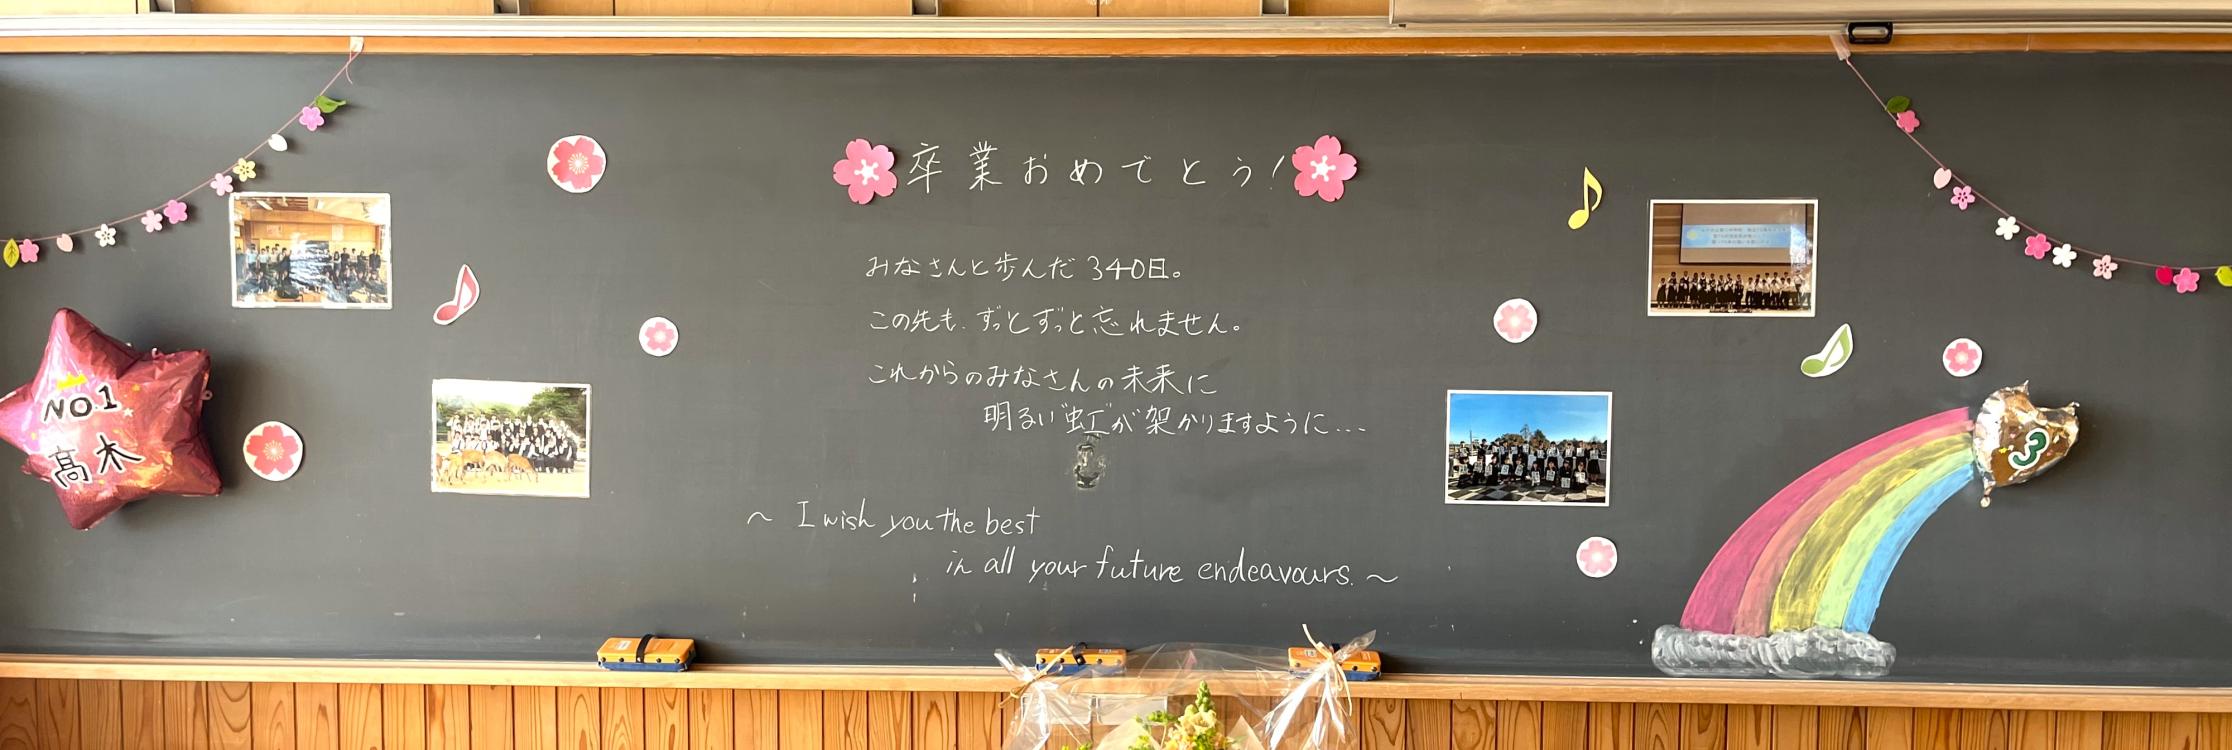 卒業おめでとう!
みなさんと歩んだ340日。
この先も、ずっとずっと忘れません。
これからのみなさんの未来に
明るい"虹"が架かりますように...
～ I wish you the best
in all your future endeavours. ～
NO.1
髙木
3